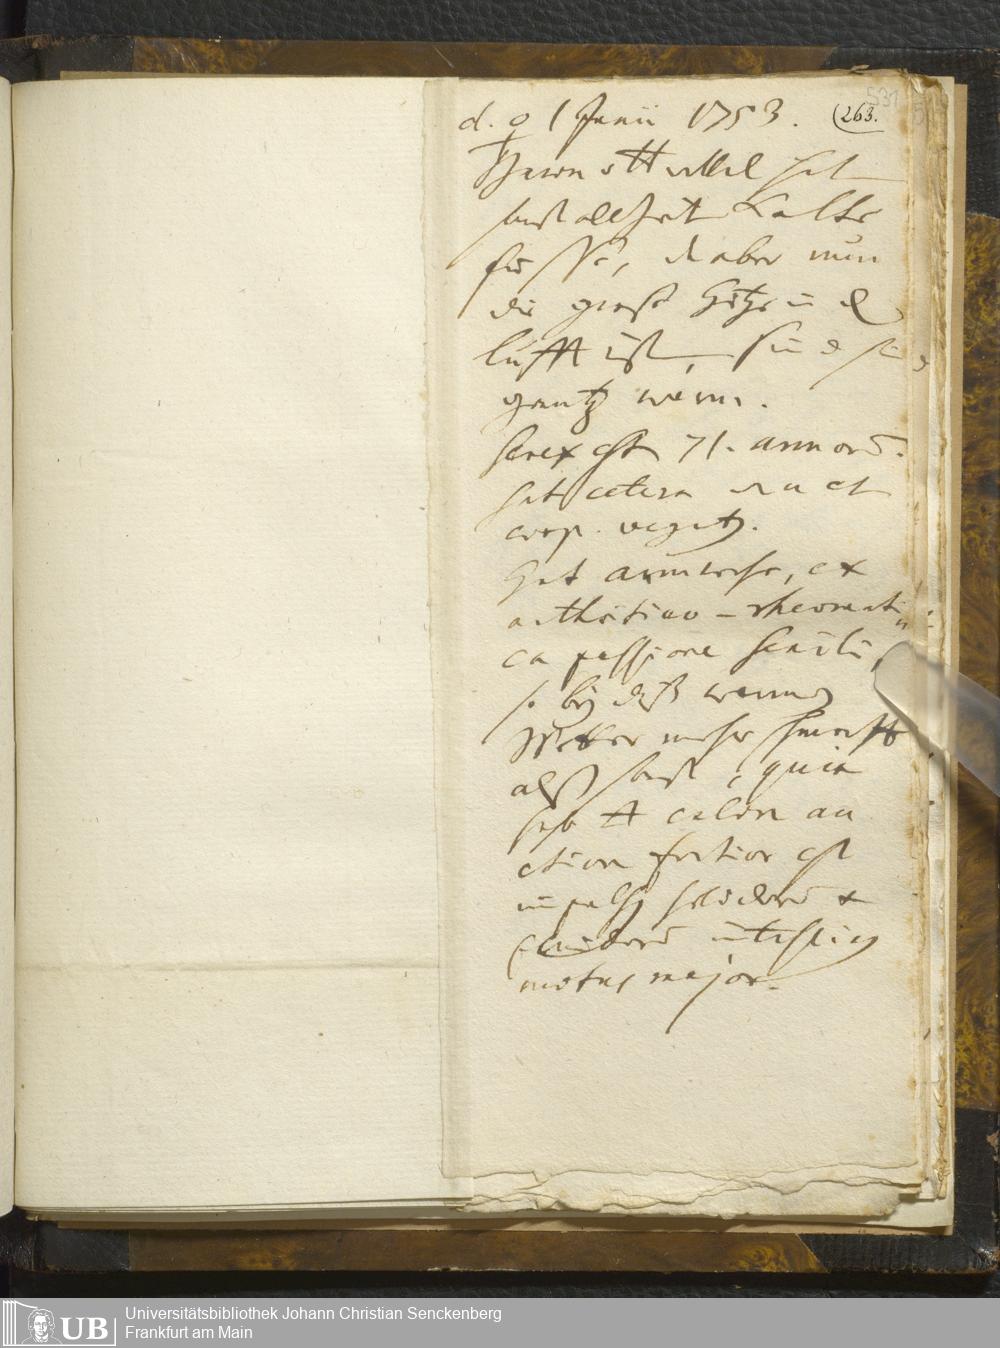 d. ♀ 1 Junii 1753. (263.
531
hat
sonst allzeit Kalte
füsse, da aber nun
die grosse Hitze in d
lufft ist, sind sie
gantz warm.
Senex est 71. annorū.
hat cetera
corp. veget.
Hat armwehe, ex
arthritico-rheumati
ca passione senili,
so bey dieß warmen
Wetter mehr schmertzt
alß sonst, quia
calore au
ctiore fortior est
impulsus solidorū &
fluidorū intestin
motus major.
UB
Universitätsbibliothek Johann Christian Senckenberg
Frankfurt am Main